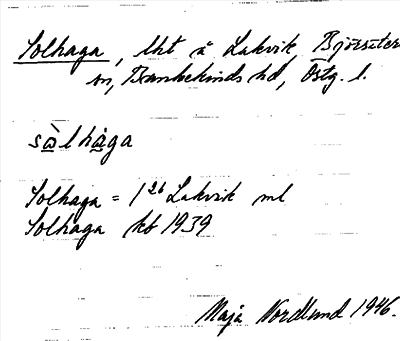 Solhaga, lht å Lakvik Björsäter
sn, Bankekinds hd, Östg. l.
sò̲lhà̲ga
Solhaga = 1²⁶ Lakvik ml
Solhaga kb 1939
Maja Nordlund 1946.